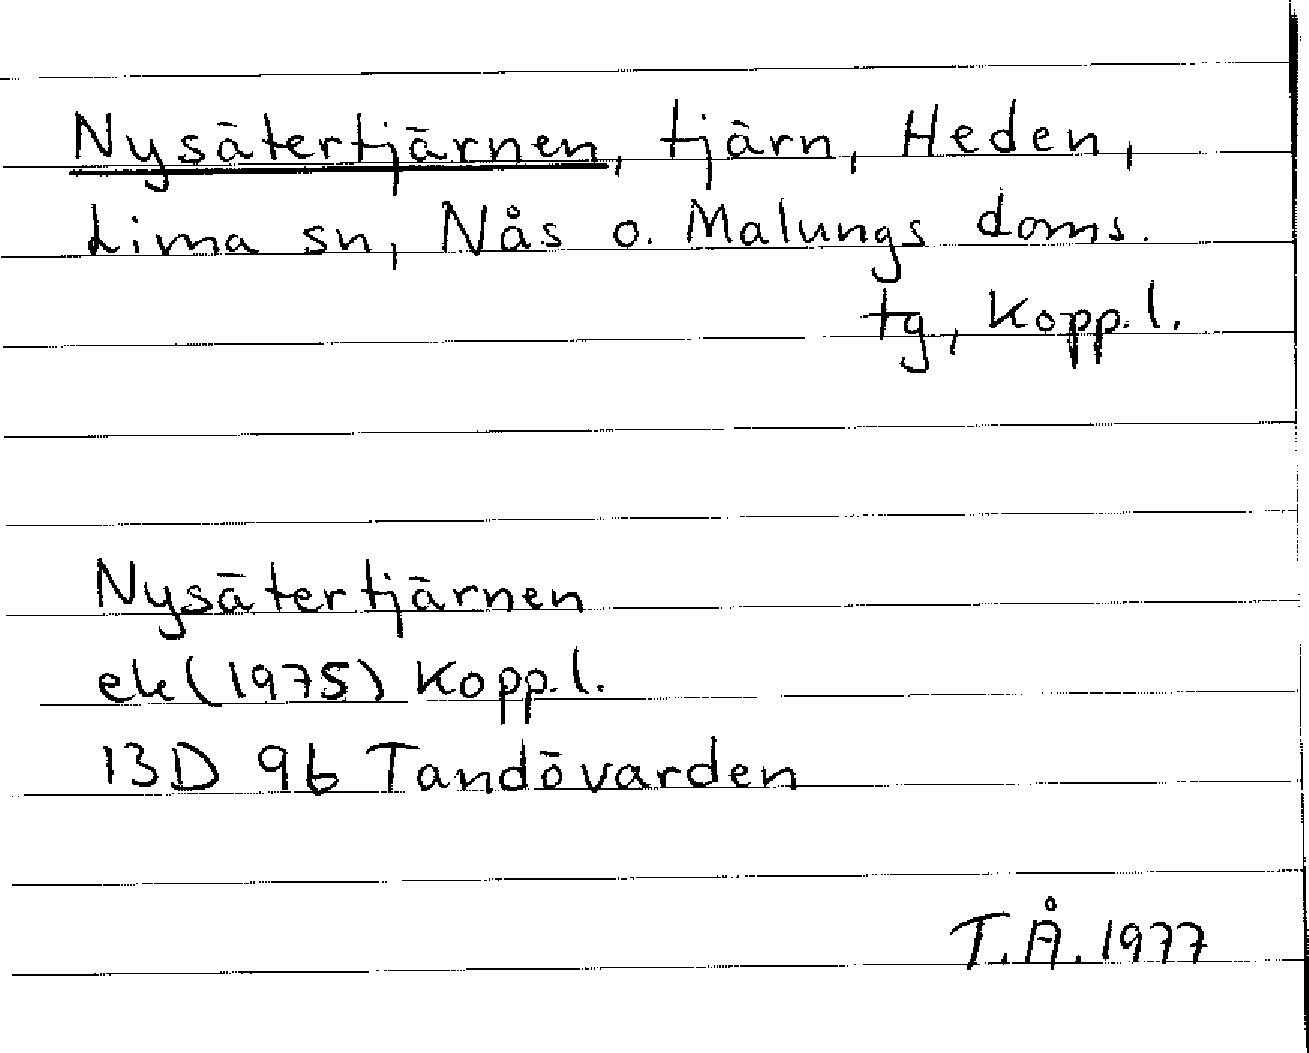 Nysätertjärnen, tjärn, Heden,
Lima sn, Nås o. Malungs doms.
tg, Kopp.l.
Nysätertjärnen
ek (1975) Kopp.l.
13D 9b Tandövarden
T.Å. 1977